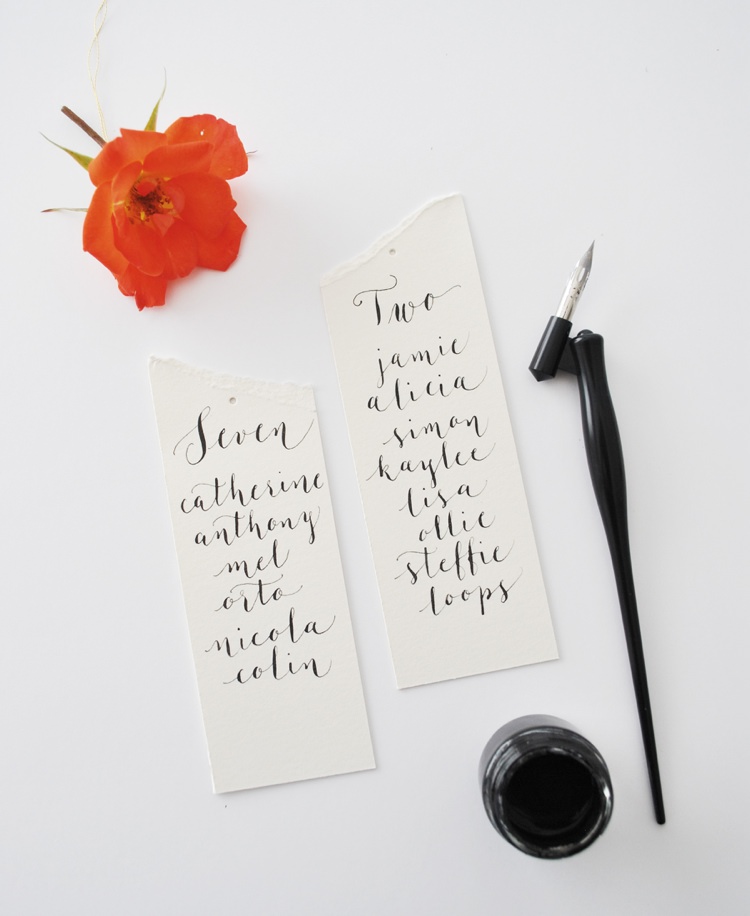 Seven
catherine
anthony
mel
orto
nicola
colin
Two
jamie
alicia
simon
kaylee
lisa
ollie
steffie
loops